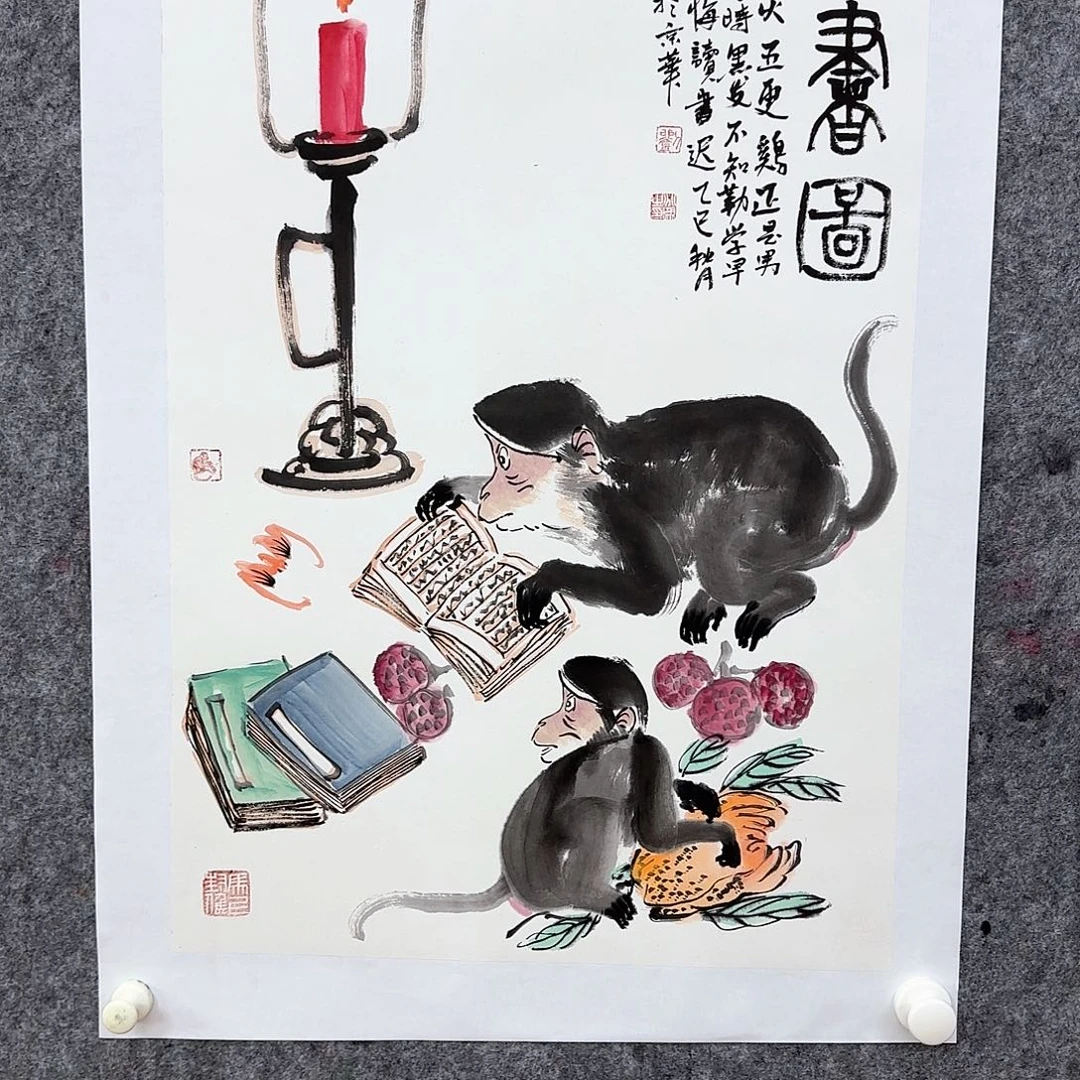 書圖
火五更鷄正是男
時黑发不知勤学早
悔讀書遲乙巳秋月
於京華